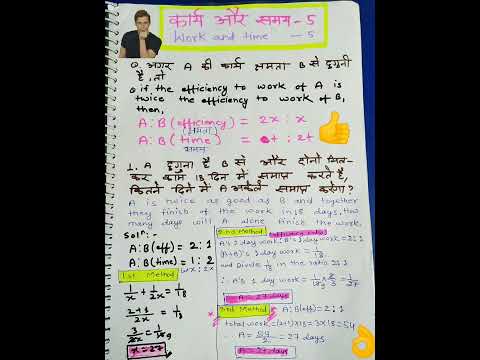 कार्य और समय - 5
Work and time - 5
Q. अगर A की कार्य क्षमता B से दुगुनी
है, तो
Q if the efficiency to work of A is
twice the efficiency to work of B,
then,
A:B (efficiency) = 2x : x
(क्षमता)
A:B (time) = t : 2t
समय
1. A दुगुना है B से और दोनों मिल-
कर काम 18 दिन में समाप्त करते है,
कितने दिन में A अकेले समाप्त करेगा?
A is twice as good as B and together
they finish of the work in 18 days, How
many days will A alone finish the work.
Soln:-
A:B (eff) = 2:1
A:B (time) = 1:2
x : 2x
1st Method
1/x + 1/2x = 1/18
2+1/2x = 1/18
3/2x = 1/18 9
x = 27
2nd Method (efficiency ratio)
A's 1 day work : B's 1 day work = 2:1
(A+B)'s 1 day work = 1/18
and Divide 1/18 in the ratio 2:1
∴ A's 1 day work = 1/18 × 2/3 = 1/27
A = 27 days
3rd Method A:B (eff) = 2:1
total work = (2+1)×18 = 3×18 = 54
∴ A = 54/2 = 27 days
A = 27 days